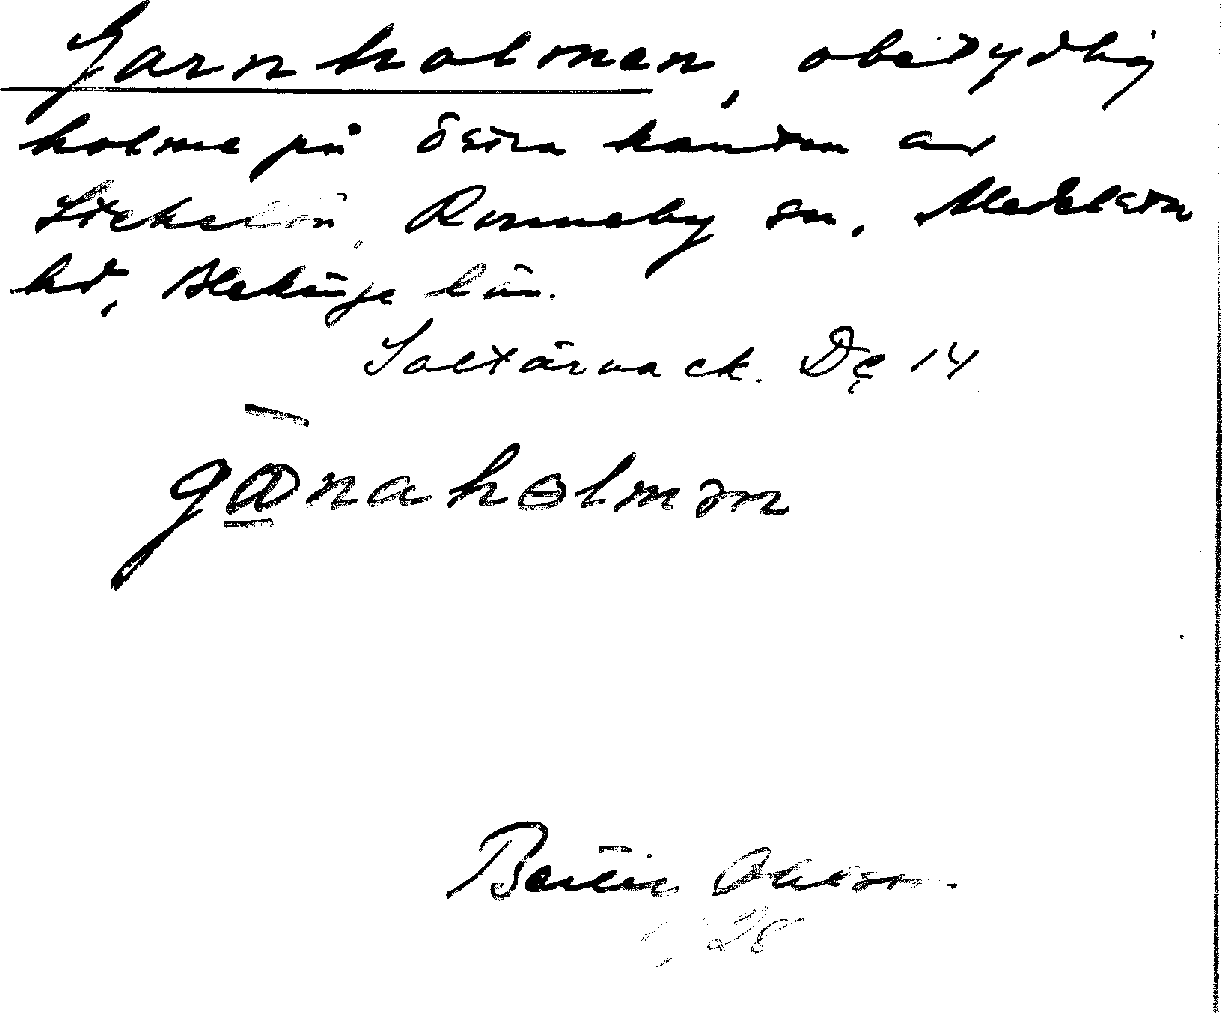 Garnholmen, obetydlig
holme på östra kanten av
Stekelön, Ronneby sn, Medelstads
hd, Blekinge län.
Saltärna ek. De 14
ganaholmen
Bertil Ohlson
28